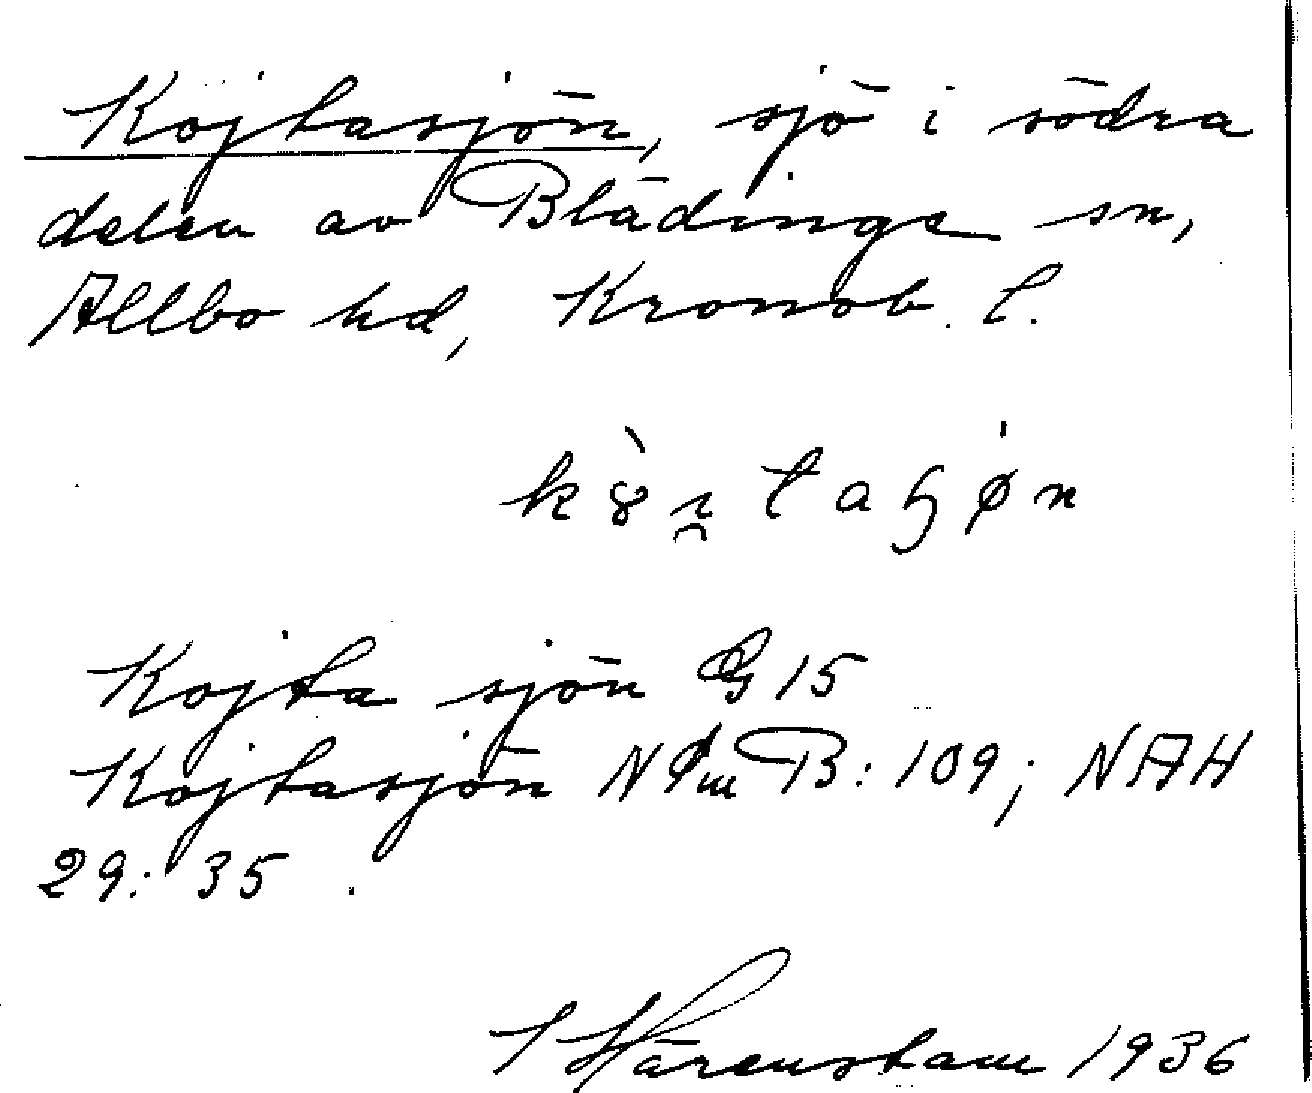 Kojtasjön, sjö i södra
delen av Blädinge sn,
Allbo hd, Kronob. l.
Kojta sjön G 15
Kojtasjön B: 109; NAH
29: 35.
Härenstam 1936